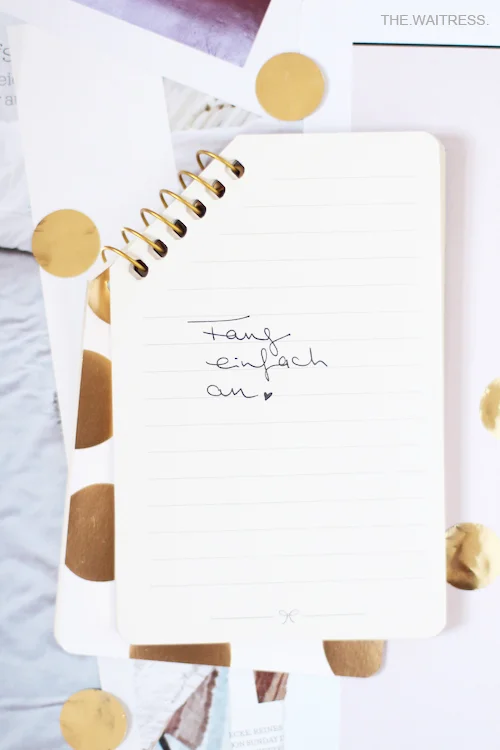 THE.WAITRESS.
Fang
einfach
an♥